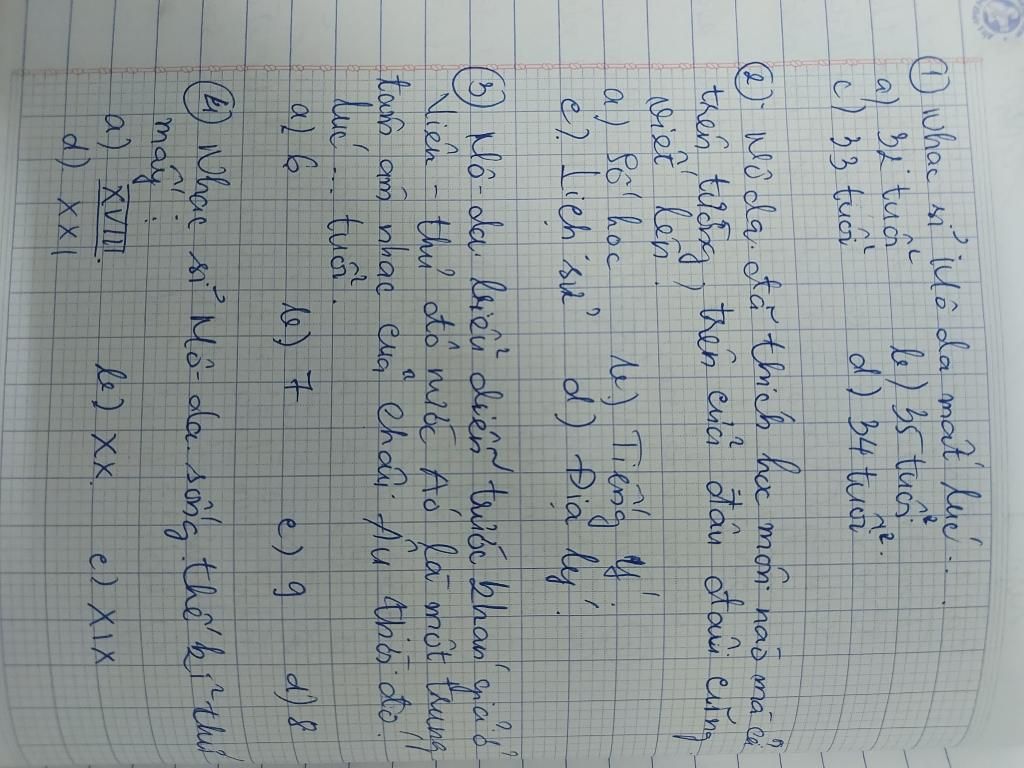 ① Nhạc sĩ Mô da mất lúc...
a) 32 tuổi b) 35 tuổi
c) 33 tuổi d) 34 tuổi.
② Mô da đã thích học môn nào mà cả
trên tường, trên cửa đâu đâu cũng
viết lên.
a) Số học b) Tiếng ý.
c) Lịch sử d) Địa lý.
③ Mô-da biểu diễn trước khán giả ở
Viên - thủ đô nước Áo là một trung
tâm âm nhạc của châu Âu thời đó
lúc ... tuổi.
a) 6 b) 7 c) 9 d) 8
④ Nhạc sĩ Mô-da sống thế kỉ thứ
mấy:
a) XVIII. b) XX c) XIX
d) XXI